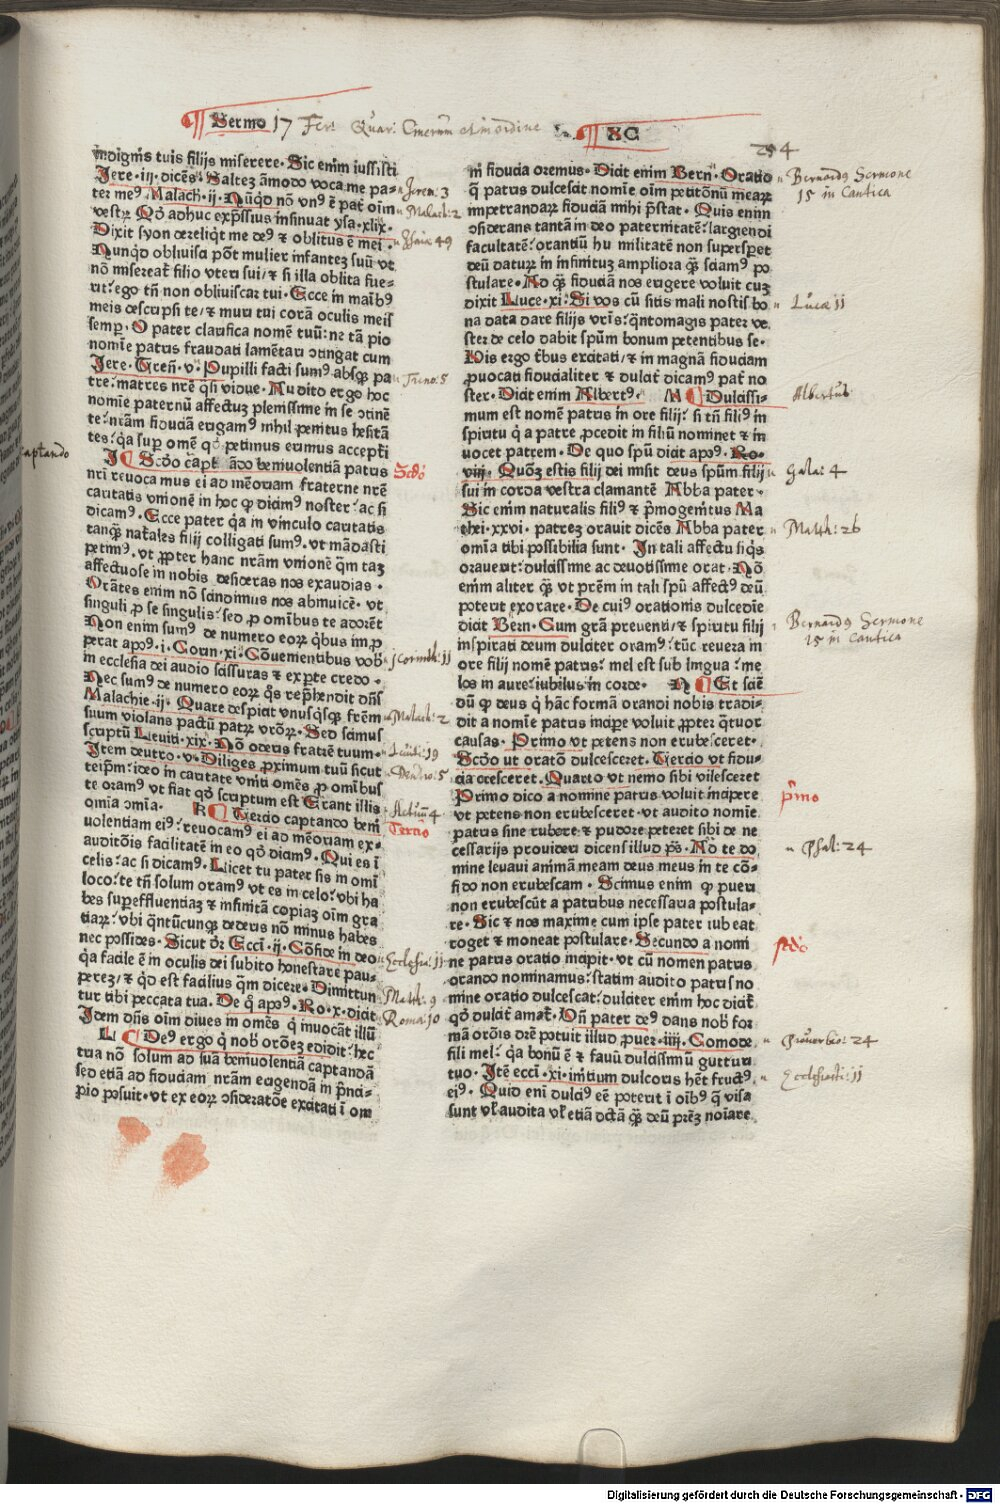 Sermo 17 Fer: Quar: Cinerum et in ordine XC
254
indignis tuis filijs miserere. Sic enim iussisti
Jere·iij·dicēs: Saltez āmodo voca me pa-
ter meꝰ. Malach·ij·Nūqd nō vnꝰ ē pat̄ oīm
vestrꝝ. Qd adhuc exp̄ssius insinuat ysa·xlix·
Dixit syon dereliqt me deꝰ ⁊ oblitus ē mei·
Nunqd obliuisci pōt mulier infantez suū vt
nō misereat̄ filio vteri sui/⁊ si illa oblita fue-
rit: ego tn̄ non obliuiscar tui·Ecce in maibꝰ
meis descripsi te/⁊ muri tui corā oculis meis
semp̄·O pater clarifica nomē tuū: ne tā pio
nomīe patris fraudati lamētari cōtingat cum
Jere·Tren̄·v·Pupilli facti sumꝰ absqꝫ pa
tre: matres nr̄e qͥsi vidue·Audito ergo hoc
nomīe paternū affectuꝫ plenissime in se cōtinē
te: nr̄am fiduciā erigamꝰ nihil penitus hesitā
tes: qͥa sup̄ omē qd petimus erimus accepti
J Scdo capt ādo beniuolentiā patris
nr̄i reuoca mus ei ad mēoriam fraterne nr̄e
caritatis vnionē in hoc ꝙ dicimꝰ noster: ac si
dicamꝰ·Ecce pater qͥa in vinculo caritatis
tanqͣꝫ nat̄ales filij colligati sumꝰ·vt mādasti
petimꝰ·vt ꝓpter hanc nr̄am vnionē qͣm taꝫ
affectuose in nobis desideras nos exaudias·
Orātes enim nō sandimus nos abinuicē·vt
singuli ꝑ se singulis: sed ꝓ omibus te adorēt
Non enim sumꝰ de numero eorꝝ qͥbus imꝓ
perat apꝰ·i·Corin·xi·Cōuenientibus vob
in ecclesia dei audio scissuras ⁊ ex ꝑte credo·
Nec sumꝰ de numero eorꝝ qͦs rep̄hendit dn̄s
Malachie·ij·Quare despicit vnusqͥsqꝫ fr̄em
suum violans pactū patrꝝ vr̄oꝝ·Sed scimus
scriptū Leuiti·xix·Nō oderis fratrē tuum·
Item deutro·v·Diliges ꝓximum tuū sicut
teip̄m: ideo in caritate vniti omēs ꝓ omībus
te oram̄ vt fiat qd scriptum est Erant illis
omia cōmia. R Tercio captando beni
uolentiam eiꝰ: reuocamꝰ ei ad mēoriam ex-
auditōis facilitatē in eo qd dicimꝰ·Qui es ī
celis: ac si dicamꝰ·Licet tu pater sis in omi
loco: te tn̄ solum oramꝰ vt es in celo: vbi ha
bes sup̄effluentiaꝫ ⁊ infinitā copiaꝫ oīm gra
tiarꝝ: vbi qn̄tūcunqꝫ dederis nō minus habes
nec possides·Sicut dr̄ Ecci·ij·Cōfide in deo
qͥa facile ē in oculis dei subito honestare pau-
perez/⁊ qd est facilius qm̄ dicere·Dimittun
tur tibi peccata tua. De q̄ apꝰ·Ro·x·dicit
Idem dn̄s oīm diues in omēs qͥ inuocāt illū
L Deꝰ ergo qͥ nob orōez edidit: hec
tua nō solum ad suā beniuolentiā captandā
sed etiā ad fiduciam nr̄am erigendā in p̄nci-
pio posuit·vt ex eorꝝ cōsideratōe excitati ī om
ni fiducia oremus·Dicit enim Bern̄·Oratio
q̄ patris dulcescit nomīe oīm petitōnū mearꝝ
impetrandarꝝ fiduciā mihi p̄stat·Quis enim
cōsiderans tantā in deo paternitatē: largiendi
facultatē: orantiū hu militatē non superꝑet
deū daturꝝ in infinituꝫ ampliora qͣꝫ sciamꝰ po
stulare·Ad qͣꝫ fiduciā nos erigere voluit cuꝫ
dixit Luce·xi·Si vos cū sitis mali nostis bo
na data dare filijs vr̄is: qn̄tomagis pater ve
ster de celo dabit spūm bonum petentibus se·
His ergo tribus excitati/⁊ in magnā fiduciam
ꝓuocati fiducialiter ⁊ dulcit̄ dicamꝰ pat̄ no
ster·Dicit enim Albertꝰ· M Dulcissi-
mum est nomē patris in ore filij: si tn̄ filiꝰ in
spiritu qͥ a patre ꝓcedit in filiū nominet ⁊ in
uocet patrem·De quo spū dicit apꝰ·Ro·
viij·Quōꝫ estis filij dei misit deus spūm filij
sui in corda vestra clamantē Abba pater·
Sic enim naturalis filiꝰ ⁊ p̄mogenitus Ma
thei·xxvi·patreꝫ orauit dicēs Abba pater
omīa tibi possibilia sunt·In tali affectu si qͥs
orauerit: dulcissime ac deuotissime orat·Nō
enim aliter qͣꝫ vt pr̄em in tali spū affectꝰ deū
poterit exorare·De cuiꝰ orationis dulcedīe
dicit Bern·Cum gr̄a preuenti/⁊ spiritu filij
inspirati deum dulciter oramꝰ: tūc reuera in
ore filij nomē patris: mel est sub lingua: me
los in aure: iubilus in corde· N Et sciē
dū ꝙ deus qͥ hāc formā orandi nobis tradi-
dit a nomīe patris incipe voluit ꝓpter qͣtuor
causas·Primo vt petens non erubesceret·
Scdo ut oratō dulcesceret·Tercio vt fidu-
cia cresceret·Quarto vt nemo sibi vilesceret
Primo dico a nomine patris voluit incipere
vt petens non erubesceret·vt audito nomīe
patris sine rubore ⁊ pudore peteret sibi de ne
cessarijs prouideri dicens illud ps̄·Ad te do
mine leuaui animā meam deus meus in te cō-
fido non erubescam·Scimus enim ꝙ pueri
non erubescūt a patribus necessaria postula-
re·Sic ⁊ nos maxime cum ipse pater iubeat
roget ⁊ moneat postulare·Secundo a nomi
ne patris oratio incipit·vt cū nomen patris
orando nominamus: statim audito patris no
mine oratio dulcescat: dulciter enim hoc dicit̄
qd dulcit̄ amat̄·Dn̄ pater deꝰ dans nob for
mā orōis dr̄e potuit illud ꝓuer·iiij·Comode
fili mel: qͥa bonū ē ⁊ fauū dulcissimū gutturi
tuo·Itē ecci·xi·initium dulcoris hēt fructꝰ
eiꝰ·Quid eni dulciꝰ eē poterit ī oībꝰ q̄ visa
sunt vl̄ audita vl̄ etiā dcā qͣꝫ deū pr̄ez noīare
Jerem: 3
Malach: 2
Esaia: 49
Treno: 5
captando
Scdo
j Corinth: 11
Malach: 2
Leuiti: 19
Deutro: 5
Actuum 4
Tercio
Ecclesia: 11
Matth: 9
Roma: 10
Bernardꝰ Sermone
15 in Cantica
Lucæ 11
Albertus
Gala: 4
Matth: 26
Bernardꝰ Sermone
15 in Cantica
p̄mo
Psal: 24
scdo
Prouerbio: 24
Ecclesiasti: 11
Digitalisierung gefördert durch die Deutsche Forschungsgemeinschaft - DFG